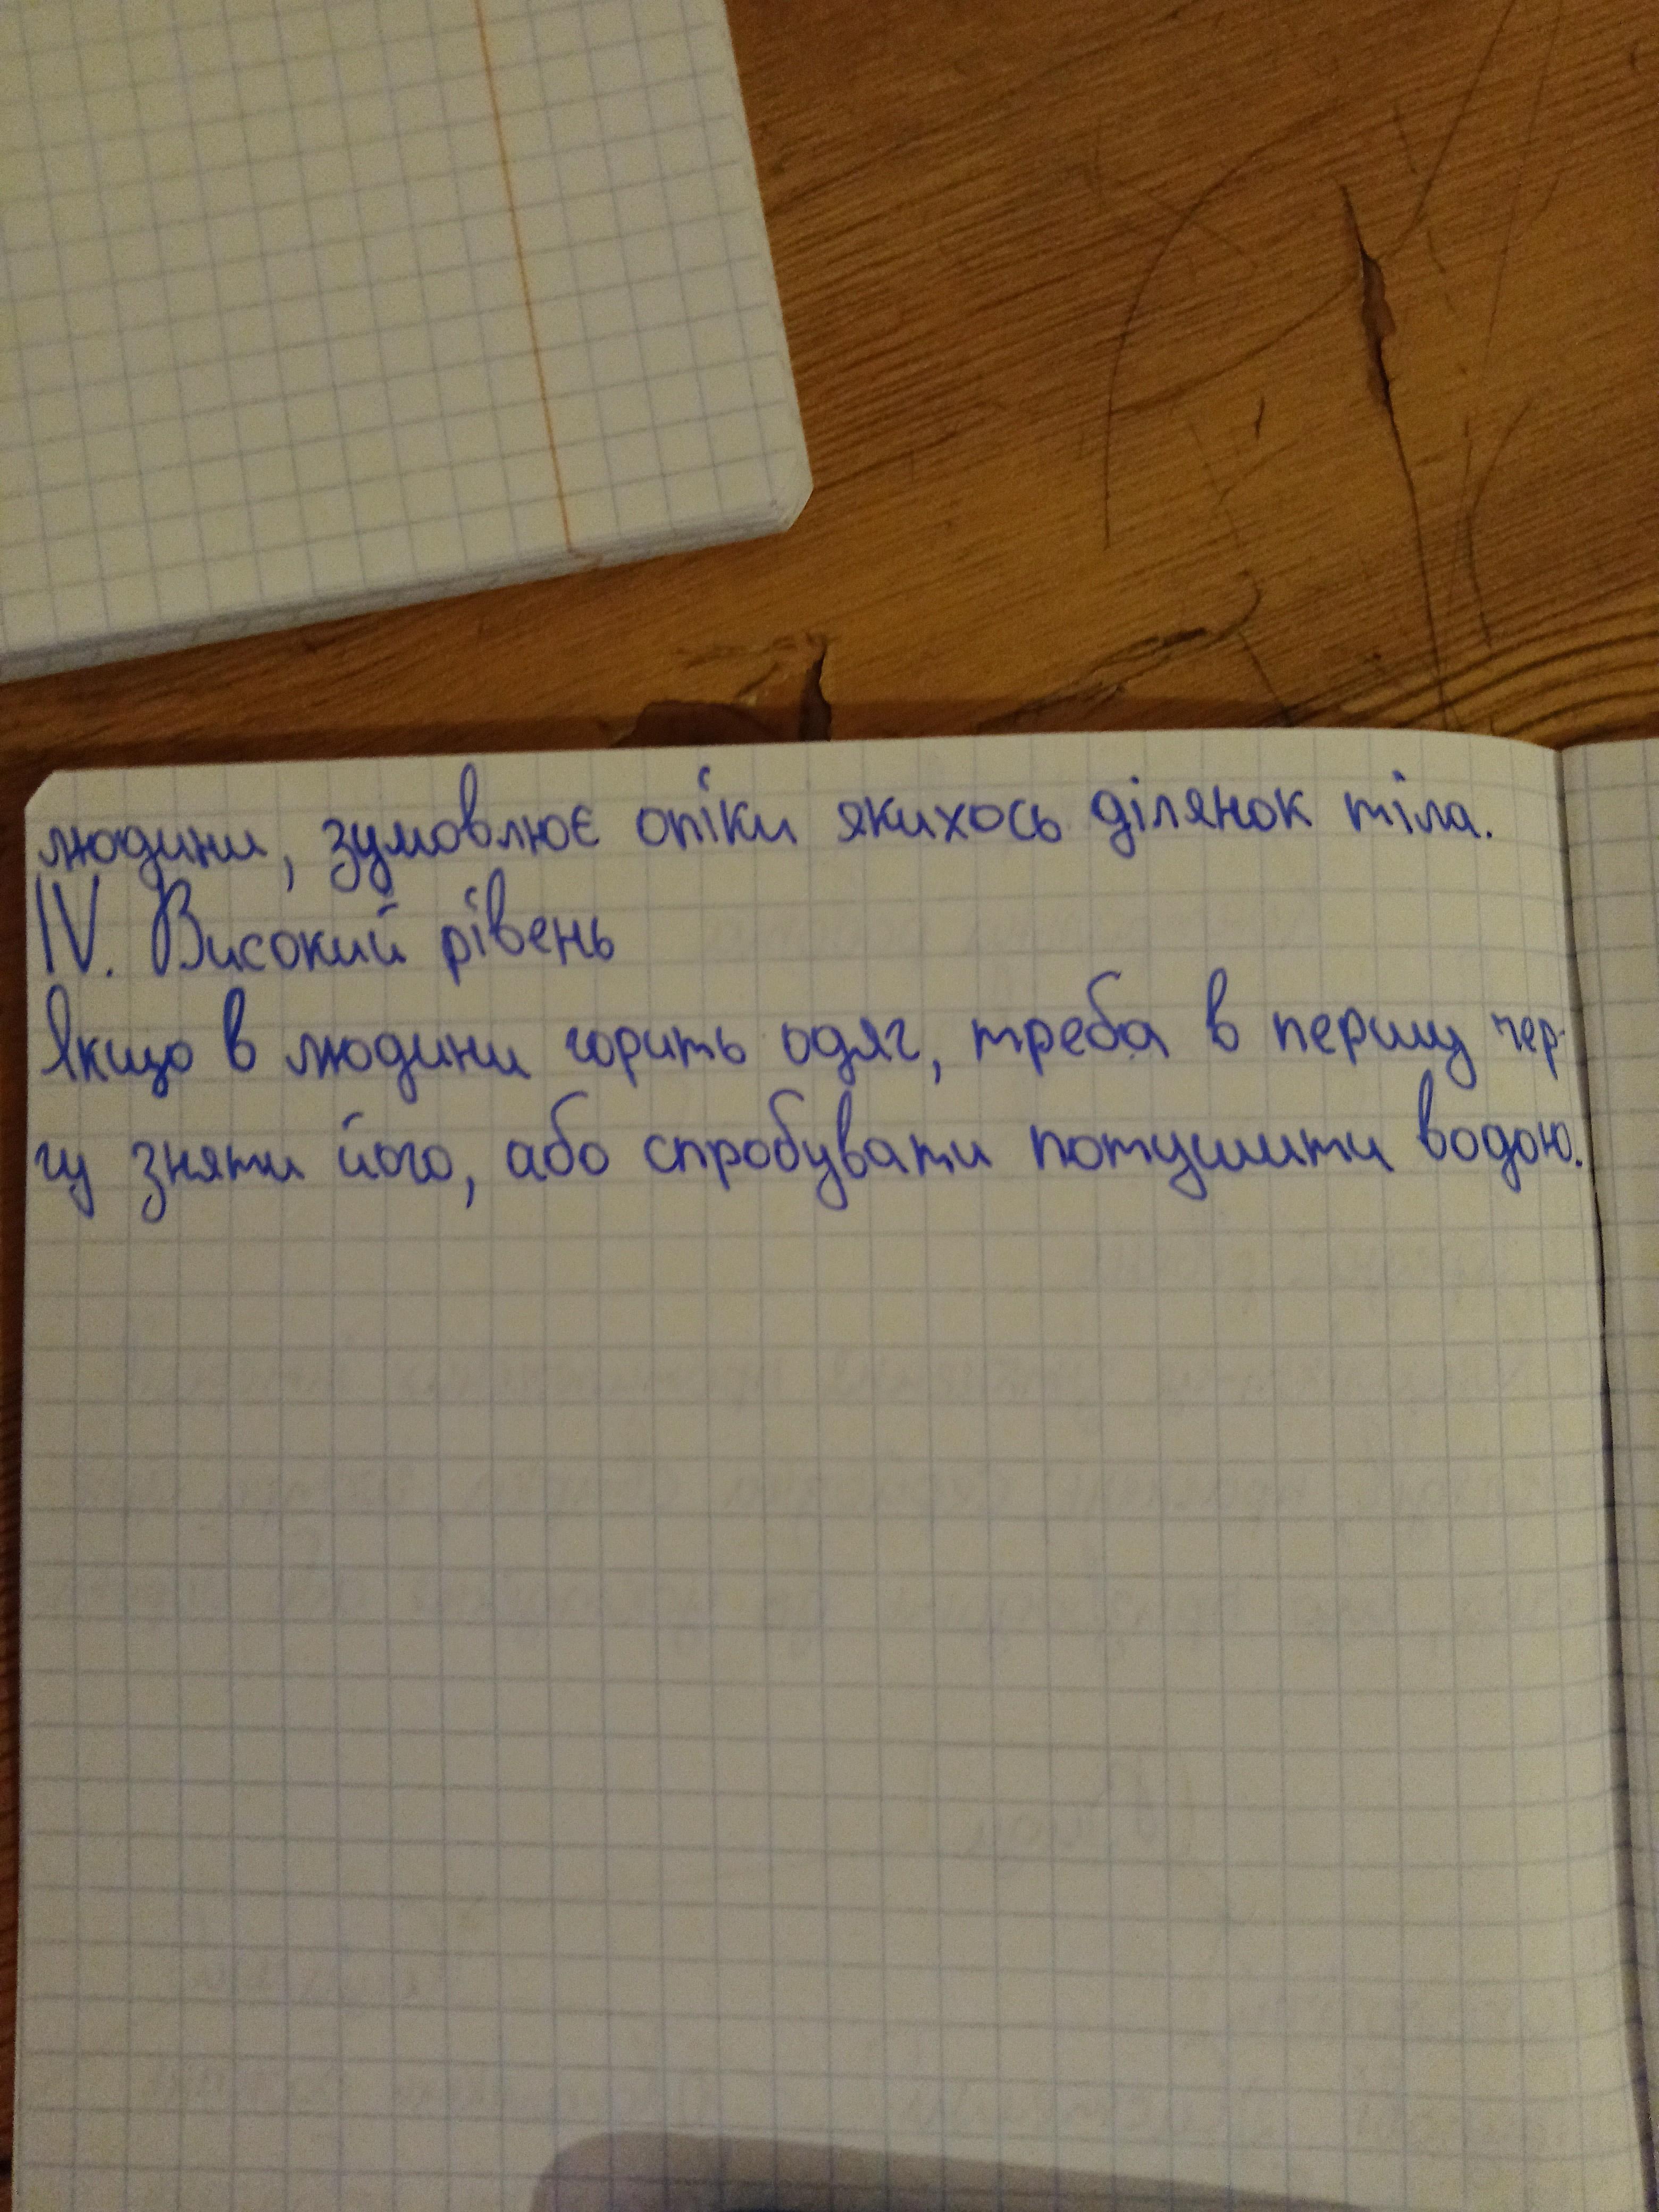 людини, зумовлює опіки якихось ділянок тіла.
IV. Високий рівень
Якщо в людини горить одяг, треба в першу чер-
гу зняти його, або спробувати потушити водою.